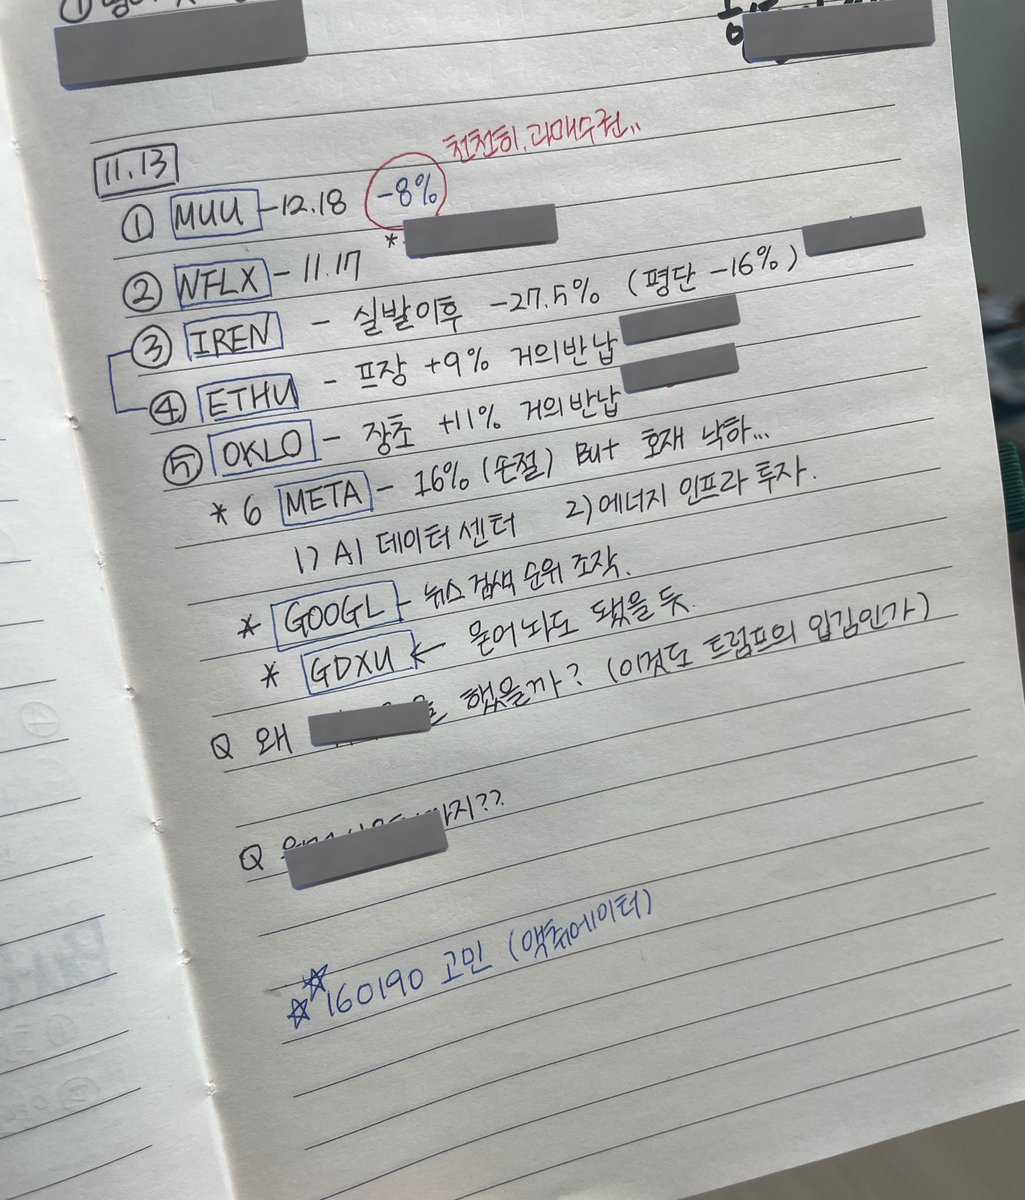 11.13
천천히. 과매수권..
① MUU - 12.18 -8%
*
② NFLX - 11.17
③ IREN - 실발이후 -27.5% (평단 -16%)
④ ETHU - 프장 +9% 거의반납
⑤ OKLO - 장초 +11% 거의반납
* 6 META - 16% (손절) But 호재 낙하...
1) AI 데이터센터 2) 에너지 인프라 투자.
* GOOGL - 뉴스 검색 순위 조작.
* GDXU ← 묻어놔도 됐을 듯.
Q 왜 했을까? (이것도 트럼프의 입김인가)
Q 까지??
☆☆160190 고민 (액츄에이터)